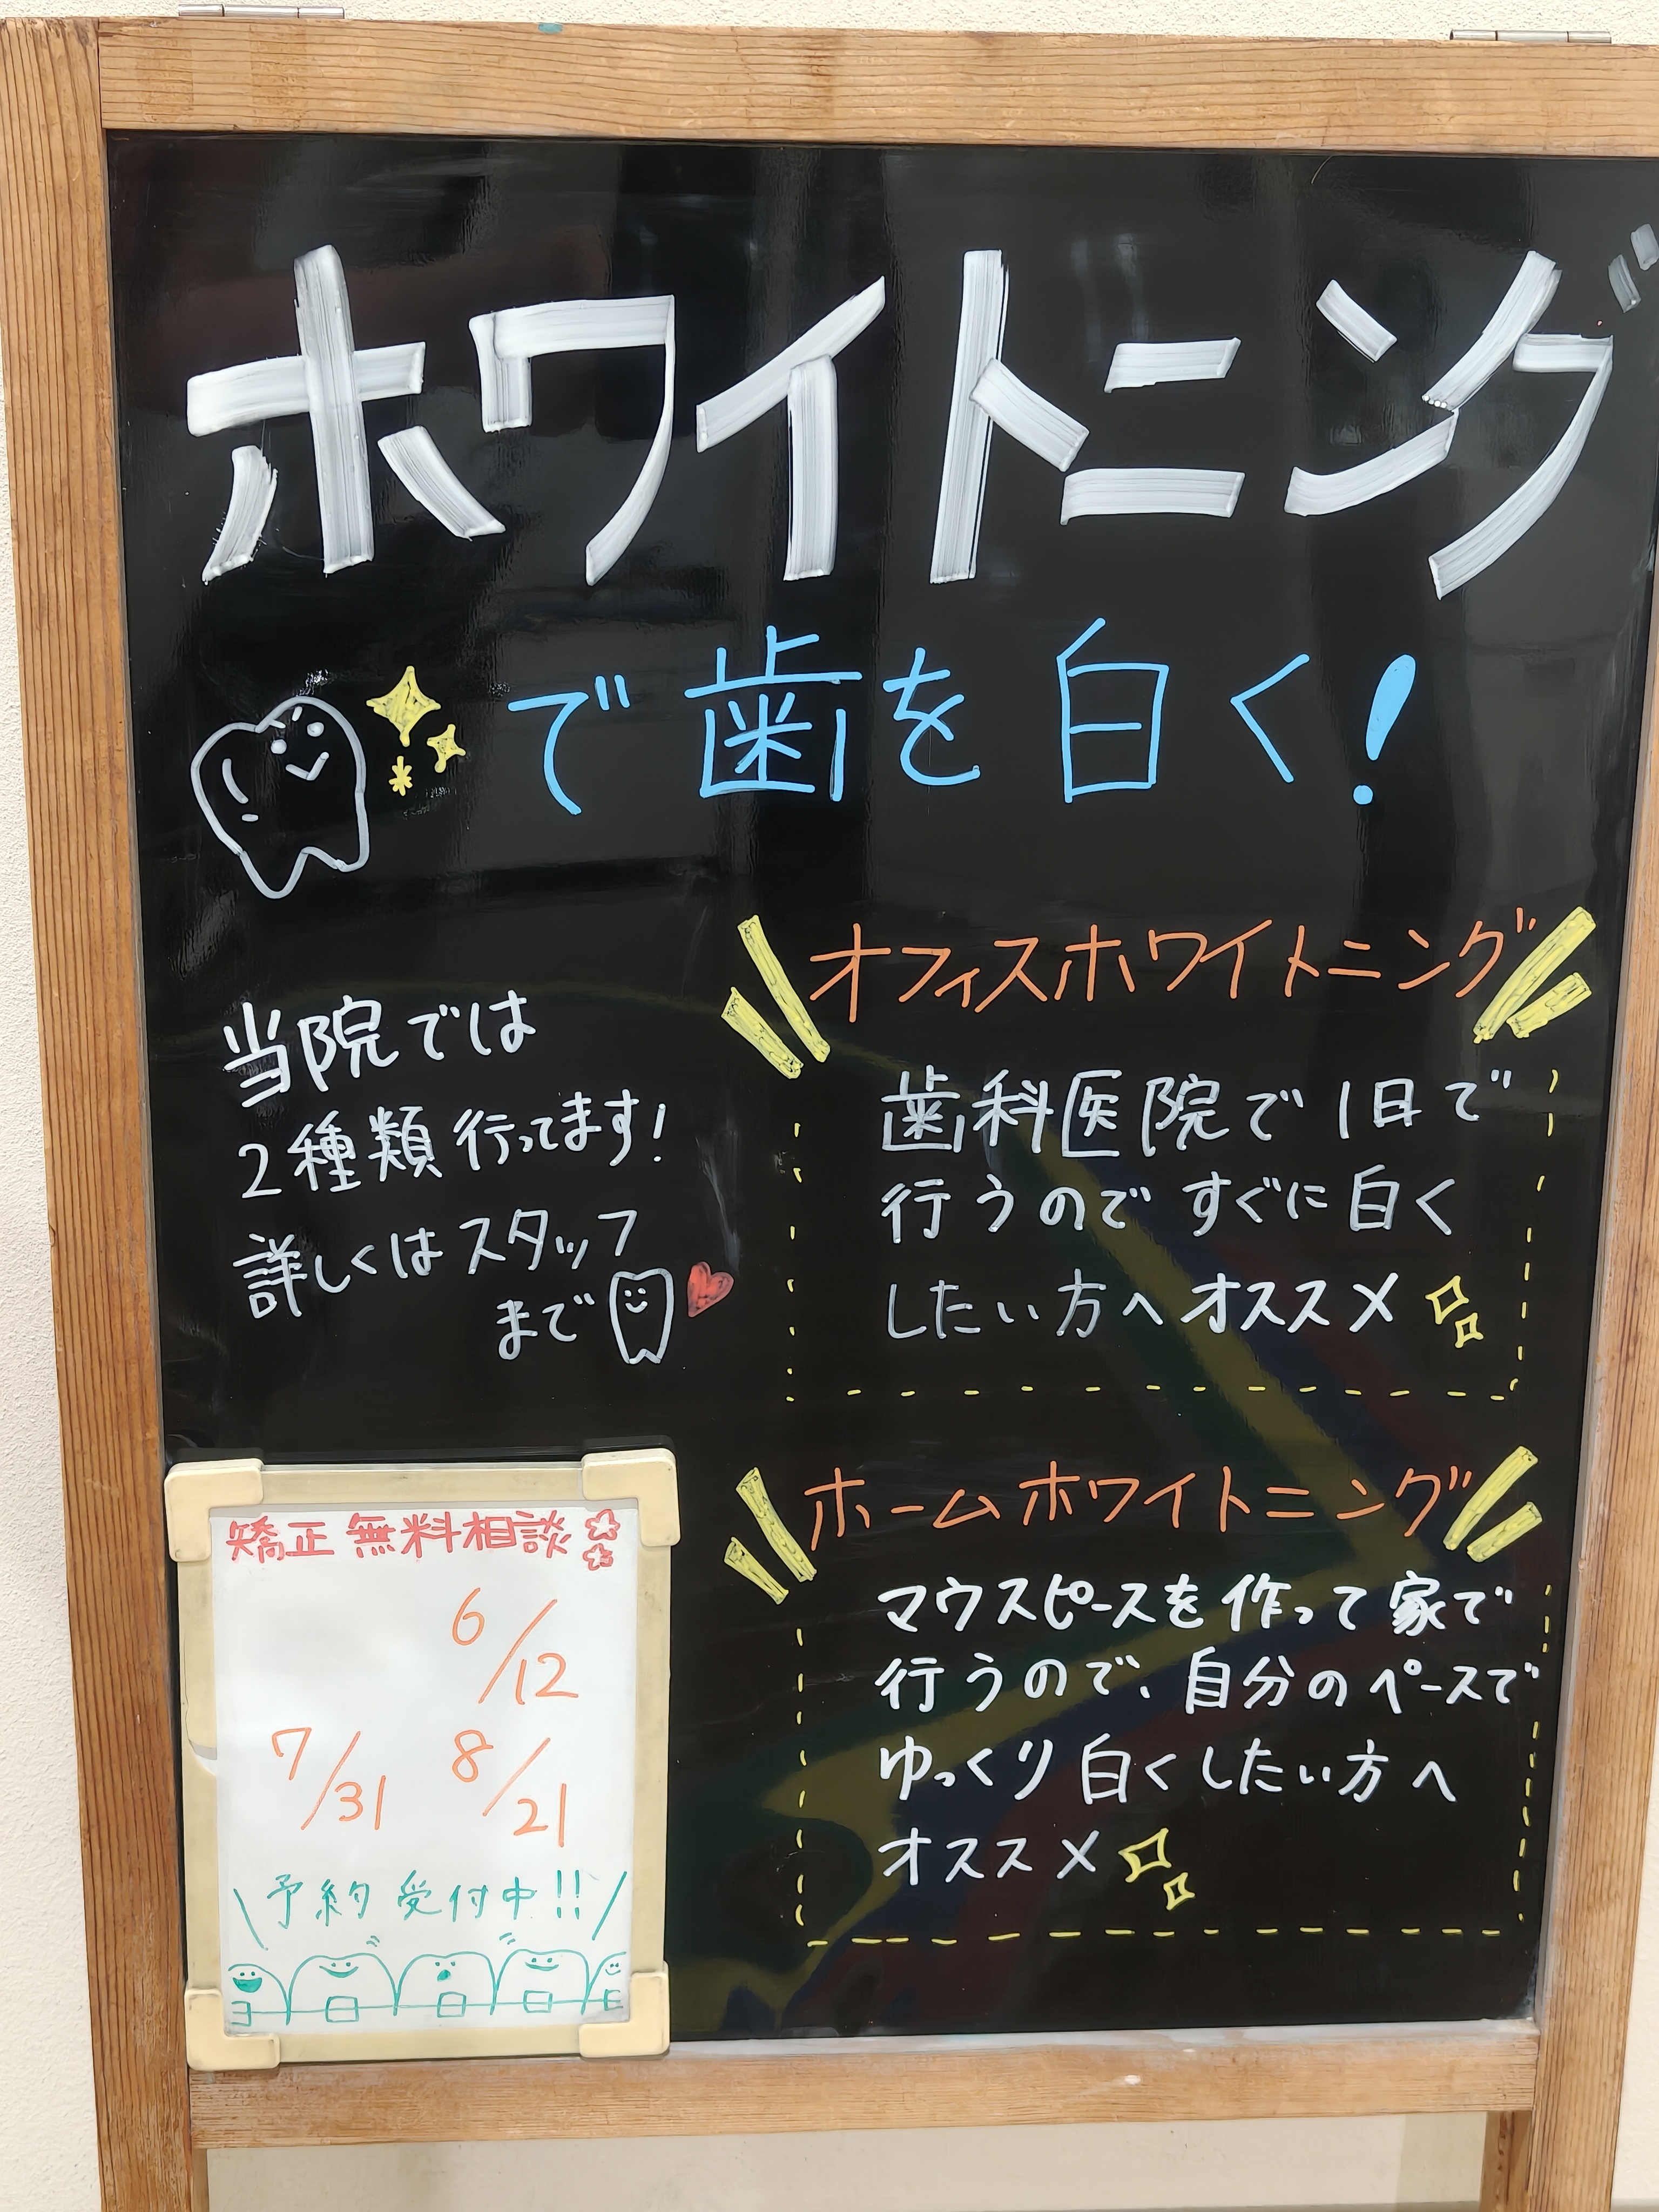 ホワイトニング
で歯を白く!
当院では
2種類行ってます!
詳しくはスタッフ
まで
オフィスホワイトニング
歯科医院で1日で
行うのですぐに白く
したい方へオススメ
ホームホワイトニング
マウスピースを作って家で
行うので、自分のペースで
ゆっくり白くしたい方へ
オススメ
矯正無料相談
6/12
7/31 8/21
\予約受付中!!/